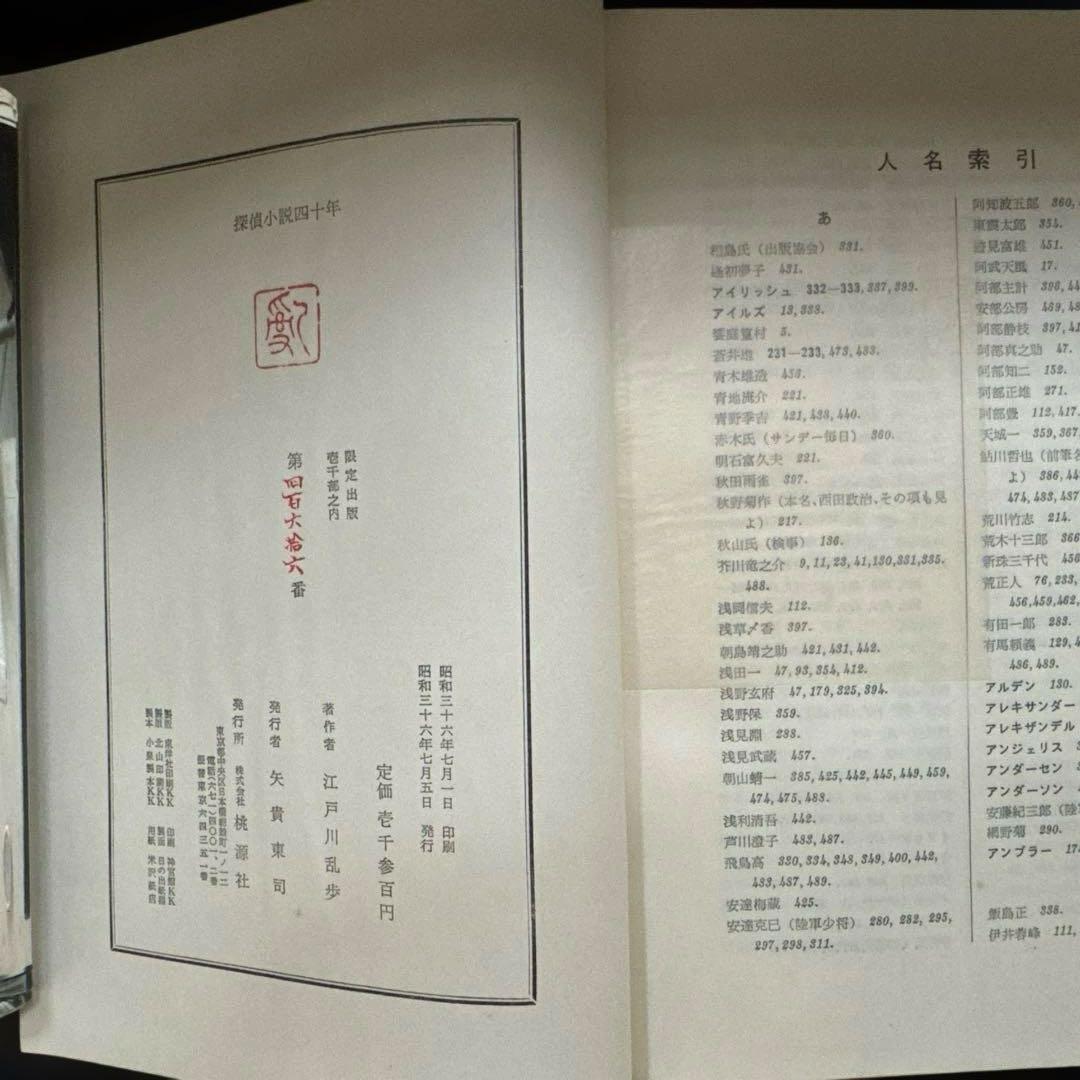 探偵小説四十年
乱
限定出版
壱千部之内
第四百六拾六番
昭和三十六年七月一日 印刷
昭和三十六年七月五日 発行
定価 壱千参百円
著作者 江戸川乱歩
発行者 矢貴東司
発行所 株式会社 桃源社
東京都中央区日本橋
電話(六七一)四〇〇一、二番
振替東京六四三五一番
印刷 神宮館KK
製本 小泉製本KK
用紙 米沢紙店
人名索引
あ
相島氏(出版協会) 331.
逢初夢子 431.
アイリッシュ 332—333, 337, 399.
アイルズ 13, 338.
饗庭篁村 5.
蒼井雄 231—233, 473, 483.
青木雄造 456.
青地 221.
青野季吉 421, 438, 440.
赤木氏(サンデー毎日) 360.
明石富久夫 221.
秋田雨雀 397.
秋野菊作(本名、西田政治、その項も見
よ) 217.
秋山氏(検事) 136.
芥川竜之介 9, 11, 23, 41, 130, 331, 335.
488.
浅岡信夫 112.
浅草〆香 397.
朝島靖之助 421, 431, 442.
浅田一 47, 93, 354, 412.
浅野玄府 47, 179, 325, 394.
浅野保 359.
浅見淵 288.
浅見武蔵 457.
朝山蜻一 385, 425, 442, 445, 449, 459,
474, 475, 483.
浅利清吾 442.
芦川澄子 483, 487.
飛鳥高 330, 334, 348, 349, 400, 442,
433, 437, 489.
安達梅蔵 425.
安達克巳(陸軍少将) 280, 282, 295,
297, 298, 311.
阿知波五郎 360,
東震太郎 354.
富雄 451.
阿武天風 17.
阿部主計 398,
安部公房 469,
阿部静枝 397,
阿部真之助 47.
阿部知二 152.
阿部正雄 271.
阿部豊 112, 417.
天城一 359, 367,
鮎川哲也(前筆名
よ) 386,
474, 483, 487
荒川竹志 214.
荒木十三郎 366
新珠三千代 456
荒正人 76, 233,
456, 459, 462,
有田一郎 283.
有馬頼義 129,
486, 489.
アルデン 130.
アレキサンダー
アレキザンデル
アンジェリス
アンダーセン
アンダーソン
安藤紀三郎(陸
網野菊 290.
アンブラー
飯島正 338.
伊井蓉峰 111,